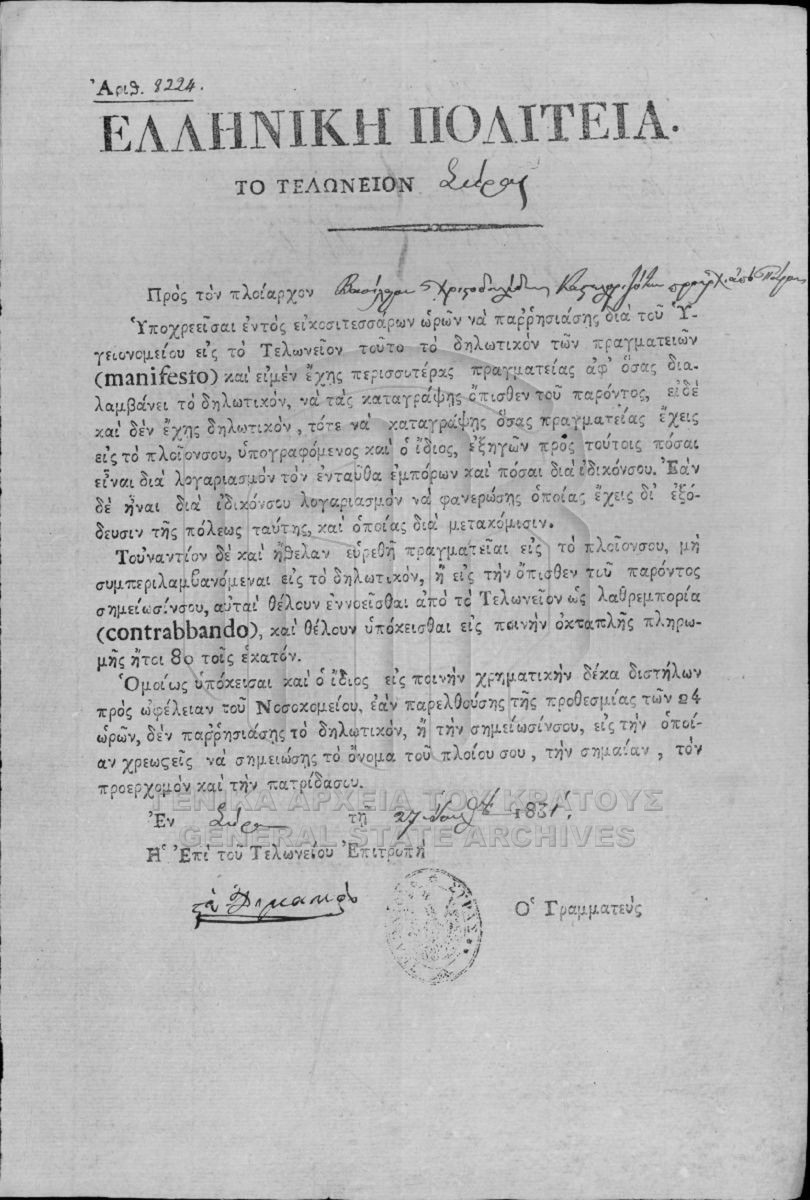 Ἀριθ. 8224.
ΕΛΛΗΝΙΚΗ ΠΟΛΙΤΕΙΑ.
ΤΟ ΤΕΛΩΝΕΙΟΝ Σύρας
Πρὸς τὸν πλοίαρχον Χριστοδουλίδην
Ὑποχρεεῖσαι ἐντὸς εἰκοσιτεσσάρων ὡρῶν νὰ παῤῥησιάσῃς διὰ τοῦ Ὑ-
γειονομείου εἰς τὸ Τελωνεῖον τοῦτο τὸ δηλωτικὸν τῶν πραγματειῶν
(manifesto) καὶ εἰμὲν ἔχῃς περισσοτέρας πραγματείας ἀφ' ὅσας δια-
λαμβάνει τὸ δηλωτικὸν, νὰ τὰς καταγράψῃς ὄπισθεν τοῦ παρόντος, εἰδὲ
καὶ δὲν ἔχῃς δηλωτικὸν, τότε νὰ καταγράψῃς ὅσας πραγματείας ἔχεις
εἰς τὸ πλοῖονσου, ὑπογραφόμενος καὶ ὁ ἴδιος, ἐξηγῶν πρὸς τούτοις πόσαι
εἶναι διὰ λογαριασμὸν τὸν ἐνταῦθα ἐμπόρων καὶ πόσαι διὰ ἰδικόνσου. Ἐὰν
δὲ ἦναι διὰ ἰδικόνσου λογαριασμὸν νὰ φανερώσῃς ὁποίας ἔχεις δι' ἐξό-
δευσιν τῆς πόλεως ταύτης, καὶ ὁποίας διὰ μετακόμισιν.
Τοὐναντίον δὲ καὶ ἤθελαν εὑρεθῆ πραγματεῖαι εἰς τὸ πλοῖονσου, μὴ
συμπεριλαμβανόμεναι εἰς τὸ δηλωτικὸν, ἢ εἰς τὴν ὄπισθεν τοῦ παρόντος
σημείωσίνσου, αὐταὶ θέλουν ἐννοεῖσθαι ἀπὸ τὸ Τελωνεῖον ὡς λαθρεμπορία
(contrabbando), καὶ θέλουν ὑπόκεισθαι εἰς ποινὴν ὀκταπλῆς πληρω-
μῆς ἤτοι 80 τοῖς ἑκατόν.
Ὁμοίως ὑπόκεισαι καὶ ὁ ἴδιος εἰς ποινὴν χρηματικὴν δέκα διστήλων
πρὸς ὠφέλειαν τοῦ Νοσοκομείου, ἐὰν παρελθούσης τῆς προθεσμίας τῶν 24
ὡρῶν, δὲν παῤῥησιάσῃς τὸ δηλωτικὸν, ἢ τὴν σημείωσίνσου, εἰς τὴν ὁποί-
αν χρεωστεῖς νὰ σημειώσῃς τὸ ὄνομα τοῦ πλοίου σου, τὴν σημαίαν, τὸν
προερχομὸν καὶ τὴν πατρίδασου.
Ἐν Σύρα τῇ 27 1831.
Ἡ Ἐπὶ τοῦ Τελωνείου Ἐπιτροπὴ
Ὁ Γραμματεὺς
ΓΕΝΙΚΑ ΑΡΧΕΙΑ ΤΟΥ ΚΡΑΤΟΥΣ
GENERAL STATE ARCHIVES